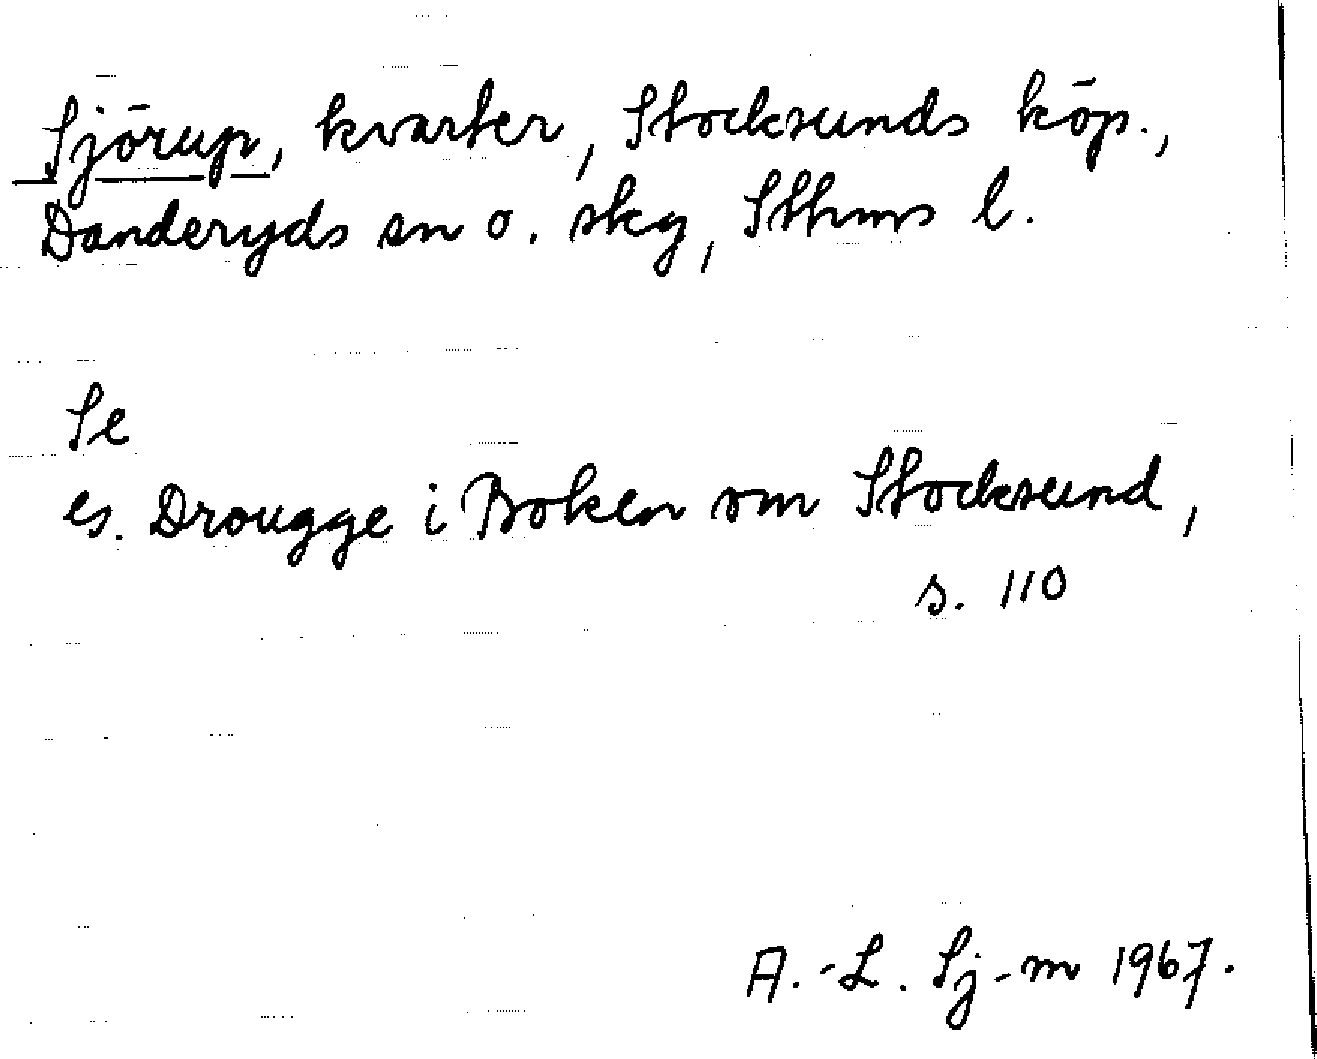 Sjörup, kvarter, Stocksunds köp.,
Danderyds sn o. skg, Sthms l.
Se
es. Drougge i Boken om Stocksund,
s. 110
A.-L. Sj-m 1967.